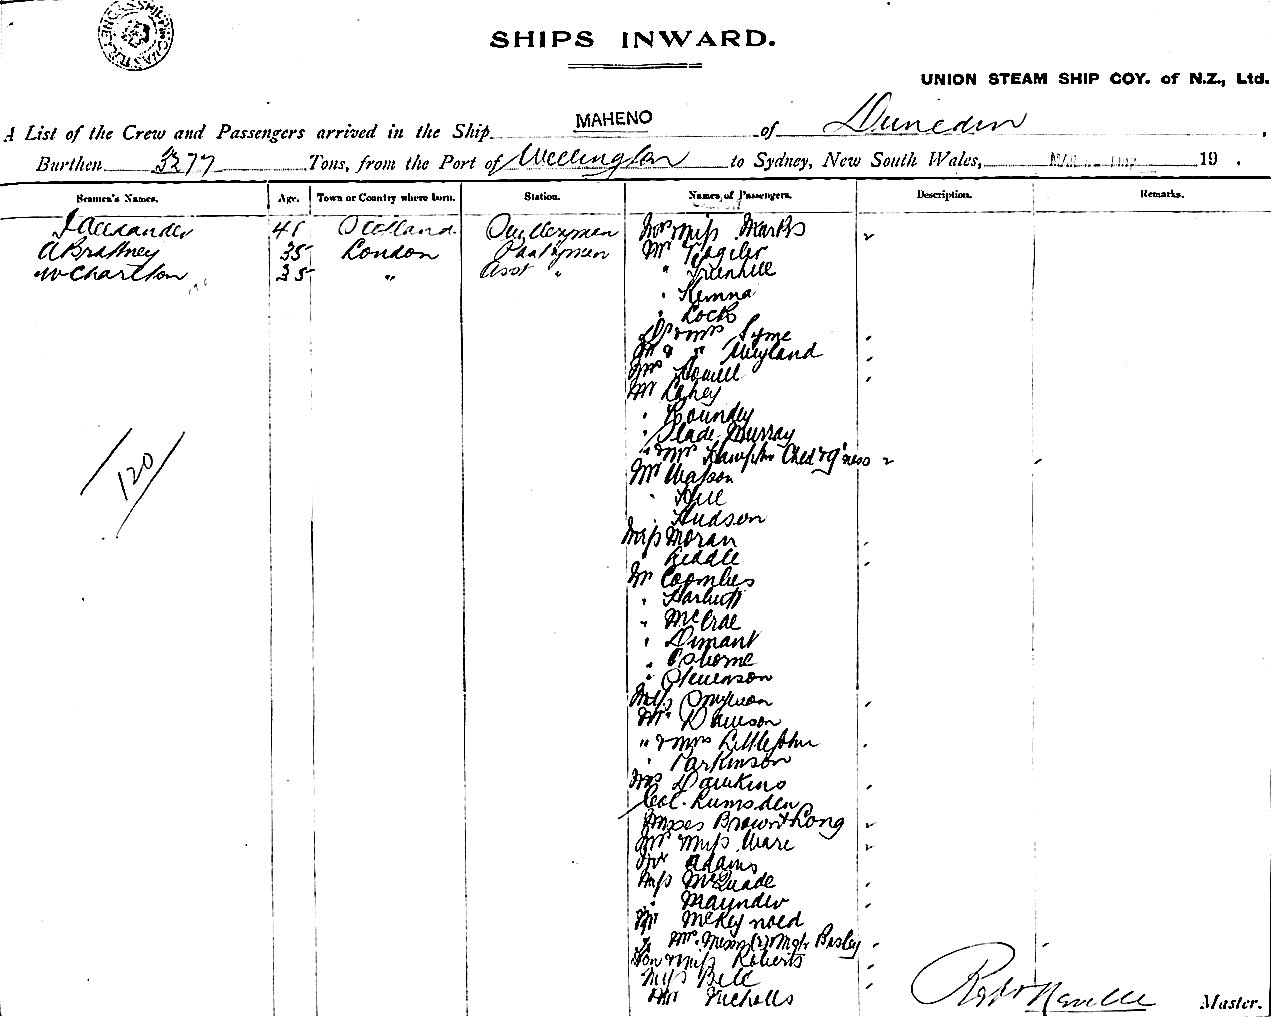 SHIPS INWARD.
UNION STEAM SHIP COY. of N.Z., Ltd.
A List of the Crew and Passengers arrived in the Ship MAHENO of Dunedin,
Burthen 3277 Tons, from the Port of Wellington to Sydney, New South Wales, 19 .
Seamen's Names. Age. Town or Country where born. Station. Names of Passengers. Description. Remarks.
J Alexander 41 Scotland Mrs & Miss Marks
35 London Pantryman Mr
W Charlton 35 " Asst " " Greenhill
" Kemna
" Lock
Dr & Mrs Syme
Mr & " Weyland
Mrs
Mr Lahey
" Boundey
" Slade Murray
" & Mrs Child &
Mr Watson
" Hill
" Hudson
Miss Moran
" Beddle
Mr Coombes
" Harbutt
" McCrae
" Dimant
" Osborne
" Stevenson
Miss
Mr Dawson
" & Mrs Littlejohn
" Parkinson
Mrs Dawkins
Col. Lumsden
Misses Brown & Long
Mr & Miss Ware
Mr Adams
Miss McQuade
" Maynder
Mr
Mr. Bosley
Miss Roberts
Miss Bell
Mr Nicholls
120
Robt Neville Master.